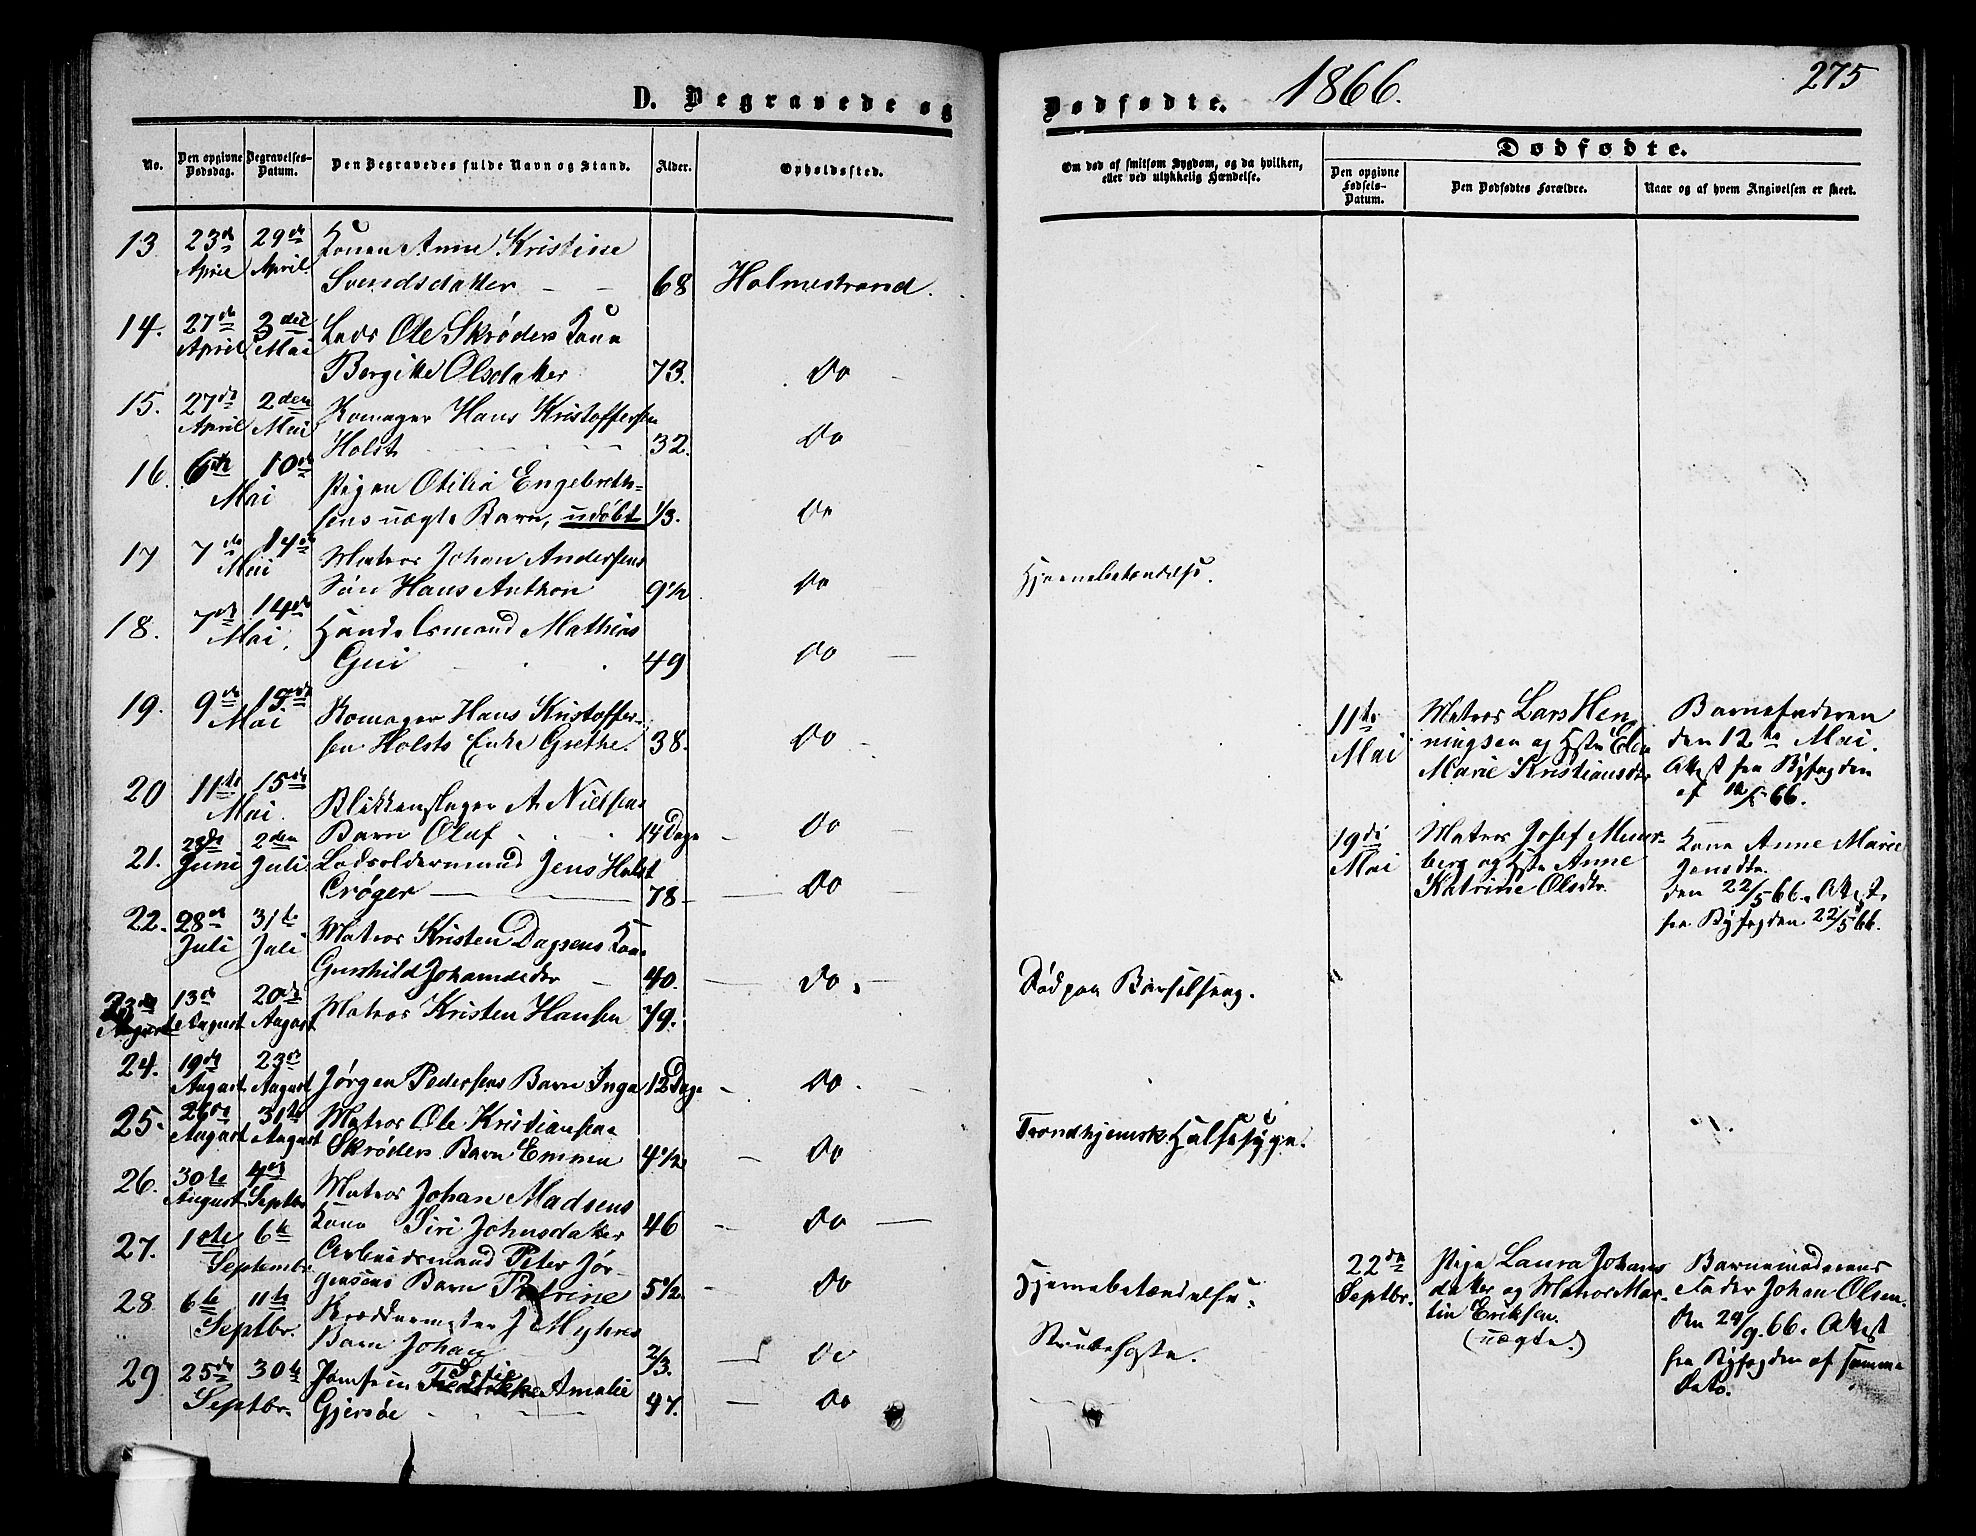 D. Begravede og
No.
Den opgivne Dødsdag.
Begravelses-Datum.
Den Begravedes fulde Navn og Stand.
Alder.
Opholdssted.
13. 23de April 29de April Konen Anne Kristine
Svendsdatter 68 Holmestrand.
14. 27de April 3die Mai Lods Ole Skrøders Kone
Bergitte Olsdatter 73. Do
15. 27de April 2den Mai Hans Kristoffersen
Holst 32. Do
16. 6te 10de Mai Pigen Otilia Engebreth-
sens uægte Barn, udøbt 1/3. Do
17 7de 14de Mai Matros Johan Andersens
Søn Hans Anthon 9 1/2 Do
18. 7de 14de Mai. Handelsmand Mathias
Gui 49 Do
19. 9de 15de Mai Hans Kristoffer-
sen Holsts Enke Grethe. 38. Do
20 11te 15de Mai Blikkenslager A. Nielsens
Barn Oluf 14 Dage Do
21. 28de Juni 2den Juli Lodsoldermand Jens Holst
Crøger 78 Do
22. 28de Juli 31te Juli Matros Kristen Dagsens Kone
Gunhild Johannesdtr 40. Do.
23de August 13de August 20de August Matros Kristen Hansen 79.
24. 19de August 23de August Jørgen Pedersens Barn Inga 12 Dage Do.
25. 26de August 31te August Matros Ole Kristiansen
Skrøders Barn Emma 4 1/2 Do
26. 30te August 4de Septbr Matros Johan Madsens
Kone Siri Johnsdatter 46 Do
27. 1ste 6te Septembr Arbeidsmand Peter Jør-
gensens Barn Petrine 5 1/2. Do
28 6te 11te Septbr. J Myhres
Barn Johan 2/3. Do
29 25de 30te Septbr. Jomfru Amalie
Gjersøe 47. Do
Dødfødte. 1866. 275
Om død af smitsom Sygdom, og da hvilken,
eller ved ulykkelig Hændelse.
Dødfødte.
Den opgivne Fødsels-Datum.
Den Dødfødtes Forældre.
Naar og af hvem Angivelsen er skeet.
Hjernebetændelse.
Død paa Barselseng.
Trondhjemsk Halsesyge.
Hjernebetændelse.
Strubehoste.
11te Mai
Matros Lars Hen-
ningsen og Hstr Elen
Marie Kristiansdtr
Barnefaderen
den 12te Mai.
Attest fra Byfogden
af 12/5 66.
19de Mai
Matros Josef Muur-
berg og Hstr Anne
Katrine Olsdtr.
Kone Anne Marie
Jensdtr.
den 22/5 66. Attest
fra Byfogden 22/5 66.
22de Septbr.
Pige Laura Johans
datter og Matros Mar-
tin Eriksen.
(uægte.)
Barnemoderens
Fader Johan Olsen.
den 24/9. 66. Attest
fra Byfogden af samme
Dato.